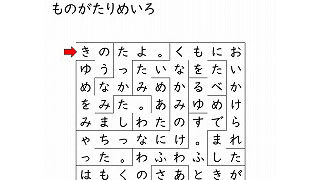 ものがたりめいろ
きのたよ。くもにお
ゆうったいなをたい
めなたみみかるべか
をみ。たあゆめでけ
みましわんのす。まら
ゃちっなにけ。ぎしれ
った。くわふわふとた
はもくのさあときが